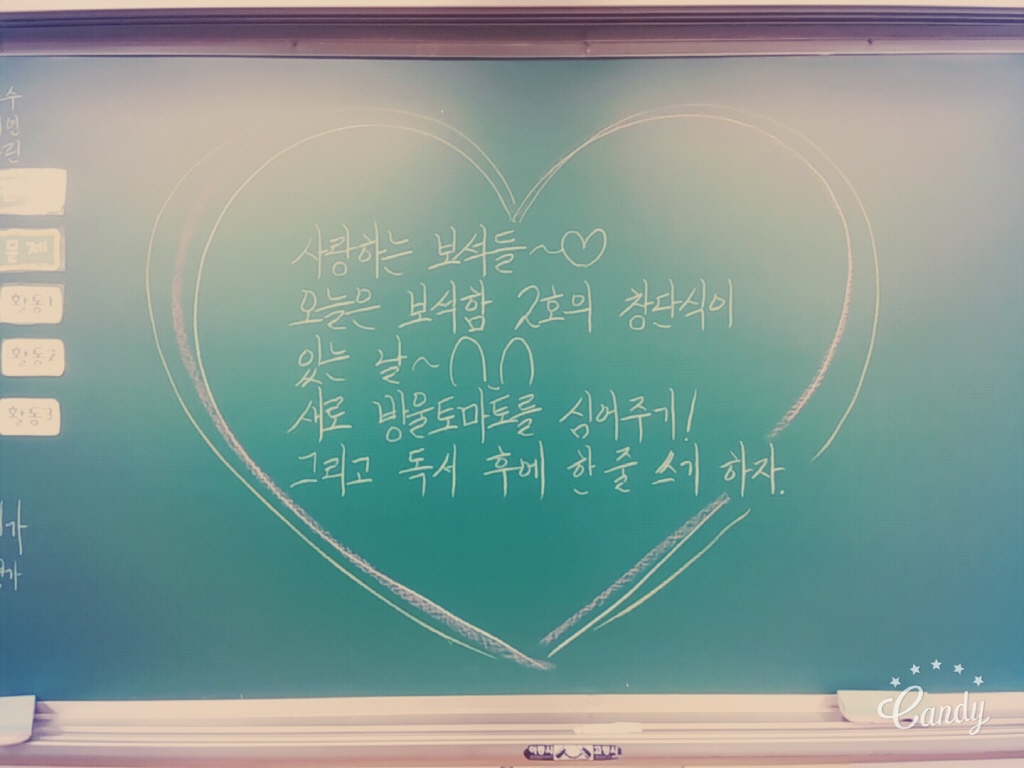 사랑하는 보석들~♡
오늘은 보석함 2호의 창단식이
있는 날~∩_∩
새로 방울토마토를 심어주기!
그리고 독서 후에 한 줄 쓰기 하자.
수
연
린
문제
활동1
활동2
활동3
가
가
Candy